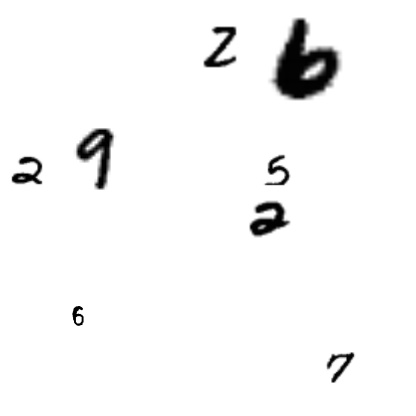 2 6
2 9 5
2
6
7